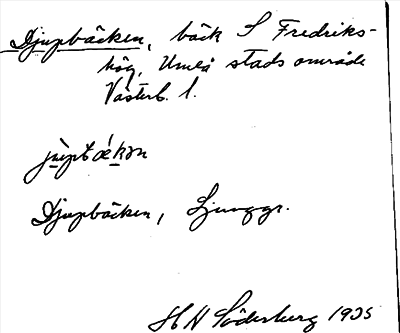 Djupbäcken, bäck S Fredriks-
hög, Umeå stads område
Västerb. l.
Djupbäcken, Ljunggr.
H N Söderberg 1935